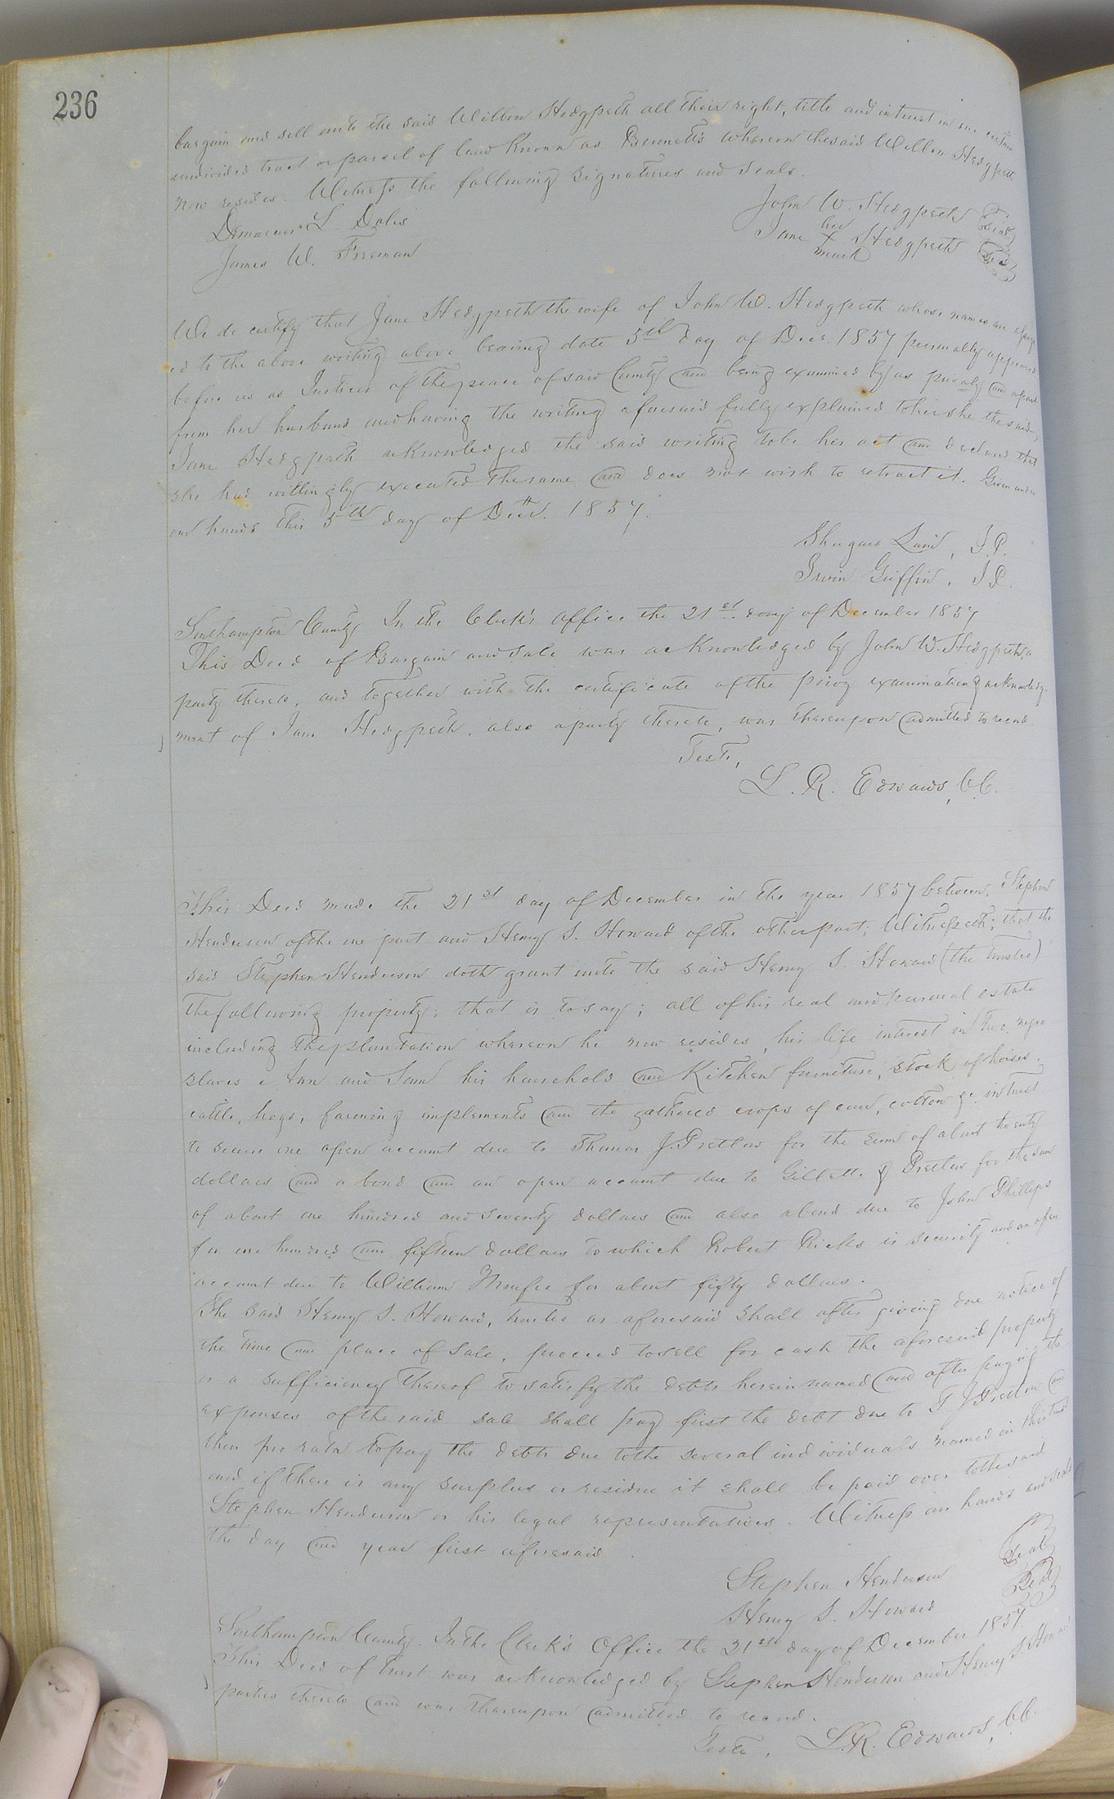 236
bargain and sell unto the said Wilton Hedgpeth all their right, title and interest in one certain
undivided tract or parcel of land known as Bennett's whereon the said Wilton Hedgpeth
now resides. Witness the following signatures and seals.
John W. Hedgpeth Seal
L. Doles
her
Jane X Hedgpeth Seal
James W. Freeman
mark
We do certify that Jane Hedgpeth the wife of John W. Hedgpeth whose names are
ed to the above writing above bearing date 5th day of Decr. 1857 personally appeared
before us as Justices of the peace of said County and being examined by us privily and apart
from her husband and having the writing aforesaid fully explained to her she the said
Jane Hedgpeth acknowledged the said writing to be her act and declared that
she had willingly executed the same and does not wish to retract it. Given under
our hands this 5th day of Decr. 1857.
Land, J.P.
Irvin Griffin, J.P.
Southampton County In the Clerk's Office the 21st day of December 1857
This Deed of Bargain and Sale was acknowledged by John W. Hedgpeth, a
party thereto, and together with the certificate of the privy examination & acknowledg-
ment of Jane Hedgpeth, also a party thereto, was thereupon admitted to record
Teste,
L. R. Edwards, C.C.
This Deed made the 21st day of December in the year 1857 between Stephen
Henderson of the one part and Henry S. Howard of the other part; Witnesseth; that the
said Stephen Henderson doth grant unto the said Henry S. Howard (the trustee)
the following property; that is to say; all of his real and personal estate
including the plantation whereon he now resides, his life interest in two negro
slaves Ann and Sam his household and Kitchen furniture, stock of horses.
cattle, hogs, farming implements and the gathered crops of corn, cotton &c in trust
to secure one open account due to Thomas J. Pretlow for the sum of about twenty
dollars and a bond and an open account due to Gillette & Pretlow for the sum
of about one hundred and seventy dollars and also a bond due to John Phillips
for one hundred and fifteen dollars to which Robert Ricks is security and an open
account due to William Munford for about fifty dollars.
The said Henry S. Howard, trustee as aforesaid shall after giving due notice of
the time and place of sale, proceed to sell for cash the aforesaid property
or a sufficiency thereof to satisfy the debts herein named and after paying the
expenses of the said sale shall pay first the debt due to T. J. Pretlow and
then pro rata to pay the debts due to the several individuals named in this trust
and if there is any surplus or residue it shall be paid over to the said
Stephen Henderson or his legal representatives. Witness our hands and seals
the day and year first aforesaid.
Stephen Henderson Seal
Henry S. Howard Seal
Southampton County. In the Clerk's Office the 21st day of December 1857
This Deed of trust was acknowledged by Stephen Henderson and Henry S. Howard
parties thereto and was thereupon admitted to record.
Teste, L. R. Edwards, C.C.